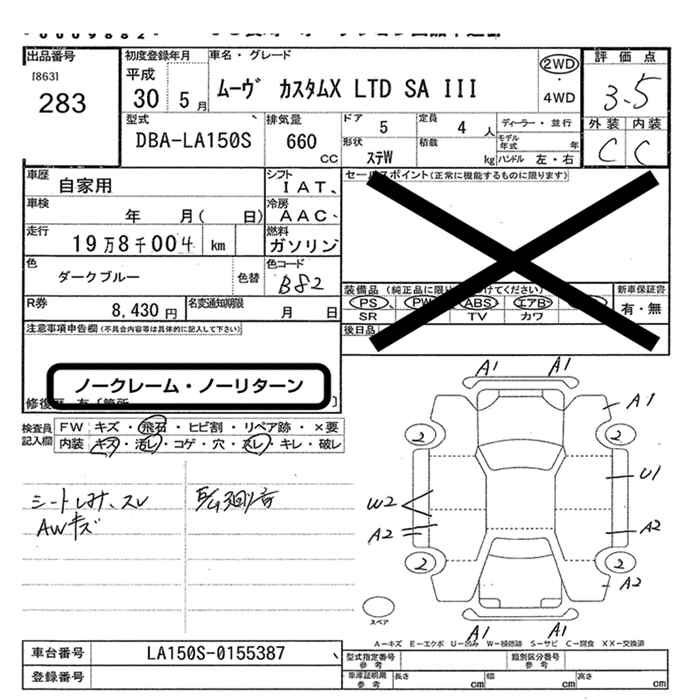 出品番号
[863]
283
初度登録年月
平成
30 5 月
車名・グレード
ムーヴ カスタムX LTD SA III
2WD
4WD
評価点
3.5
外装 内装
C C
型式
DBA-LA150S
排気量
660 CC
ドア 5
定員 4 人
ディーラー・並行
形状 ステW
積載 kg
モデル年式 年
ハンドル 左・右
車歴
自家用
シフト
IAT、
車検
年 月( 日)
冷房
AAC、
走行
19万8千004 km
燃料
ガソリン
色
ダークブルー
色替
色コード
B82
R券
8,430 円
名変通知期限
月 日
セールスポイント(正常に機能するものに限ります)
装備品
PS PW ABS エアB
SR TV カワ
新車保証書
有・無
後日品
注意事項申告欄(不具合内容等は具体的に記入して下さい)
ノークレーム・ノーリターン
検査員記入欄
FW キズ・飛石・ヒビ割・リペア跡・×要
内装 キズ・汚レ・コゲ・穴・スレ・キレ・破レ
シートしみ、スレ
AWキズ
A1 A1
A1
2 2
U1
W2
A2 A2
2 2
A2
A1 A1
スペア
A-キズ E-エクボ U-凹み W-補修跡 S-サビ C-腐食 XX-交換済
車台番号
LA150S-0155387
登録番号
型式指定番号 参考
類別区分番号 参考
車庫証明用 参考
長さ cm
幅 cm
高さ cm